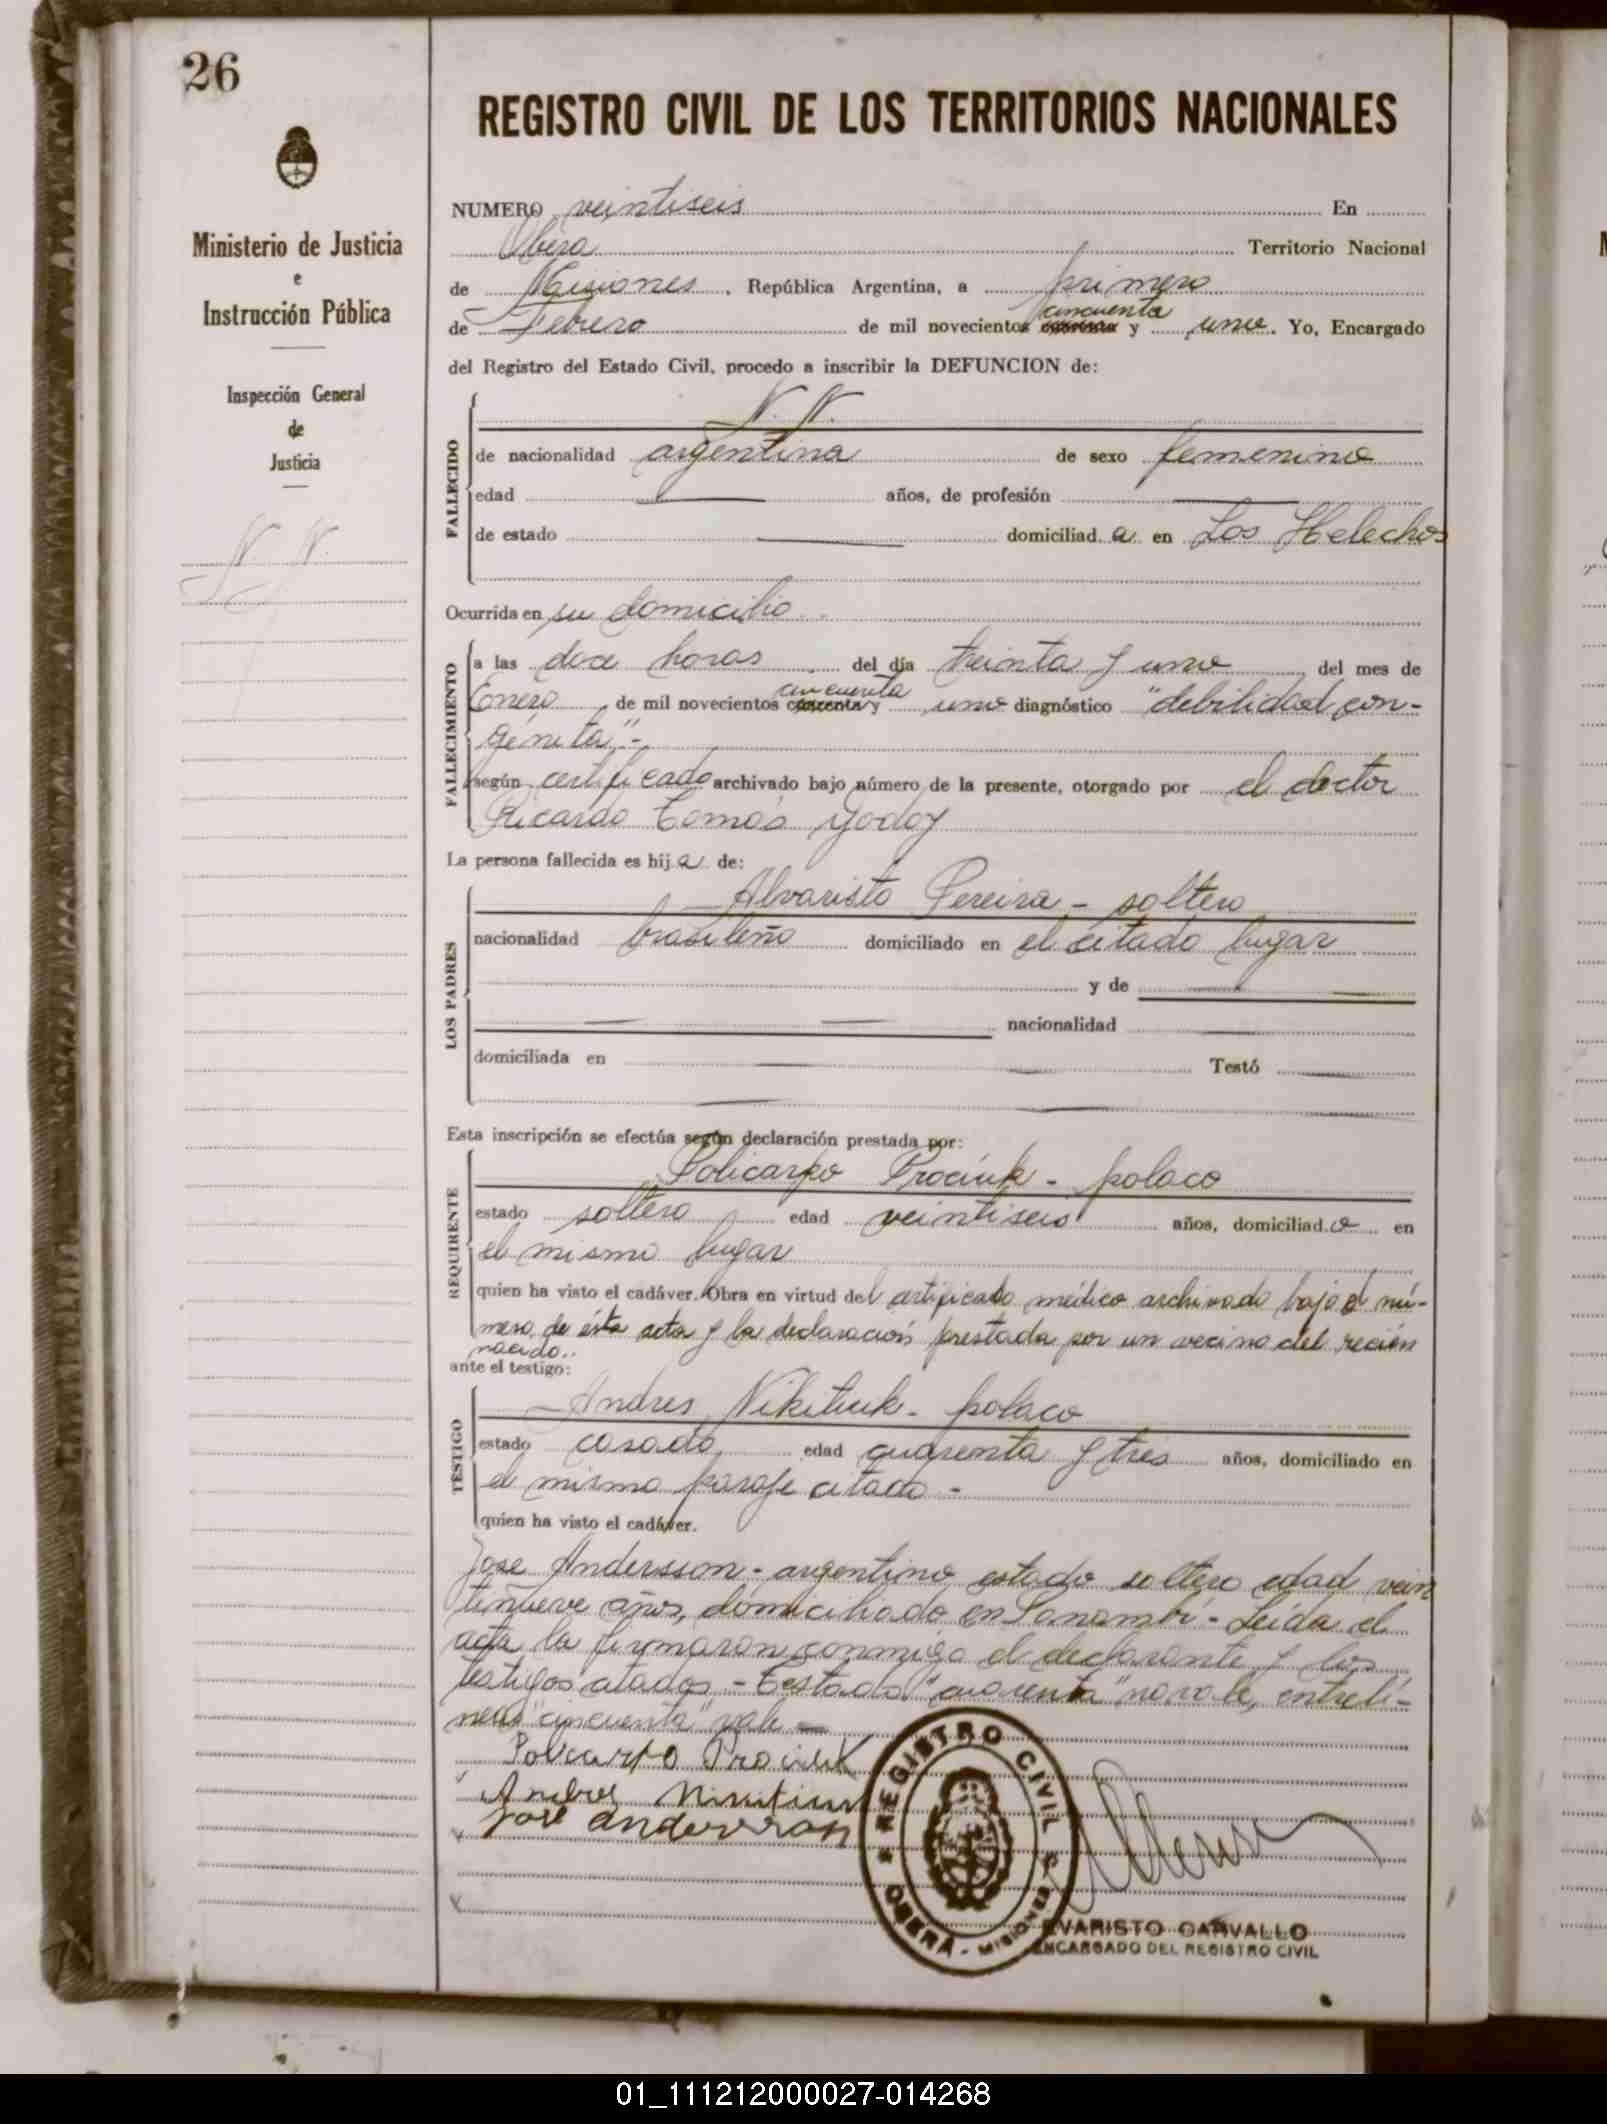 26
REGISTRO CIVIL DE LOS TERRITORIOS NACIONALES
Ministerio de Justicia
e
Instrucción Pública
Inspección General
de
Justicia
N. N.
NUMERO veintiseis En
Oberá Territorio Nacional
de Misiones, República Argentina, a primero
cincuenta
de Febrero de mil novecientos y uno. Yo, Encargado
del Registro del Estado Civil, procedo a inscribir la DEFUNCION de:
N. N.
FALLECIDO
de nacionalidad argentina de sexo femenino
edad años, de profesión
de estado domiciliad a en Los Helechos
Ocurrida en su domicilio
FALLECIMIENTO
a las doce horas del día treinta y uno del mes de
cincuenta
Enero de mil novecientos cuarenta y uno diagnóstico "debilidad con-
génita"-
según certificado archivado bajo número de la presente, otorgado por el doctor
Ricardo Tomás Godoy
La persona fallecida es hij a de:
LOS PADRES
Alvaristo Pereira - soltero
nacionalidad brasileño domiciliado en el citado lugar
y de
nacionalidad
domiciliada en Testó
Esta inscripción se efectúa según declaración prestada por:
REQUIRENTE
Policarpo Prociuk - polaco
estado soltero edad veintiseis años, domiciliad o en
el mismo lugar
quien ha visto el cadáver. Obra en virtud del certificado médico archivado bajo el nú-
mero de ésta acta y la declaración prestada por un vecino del recién
nacido..
ante el testigo:
TESTIGO
Andres Nikitiuk - polaco
estado casado edad cuarenta y tres años, domiciliado en
el mismo paraje citado -
quien ha visto el cadáver.
Jose Andersson - argentino estado soltero edad vein
tinueve años, domiciliado en Panambí - Leída el
acta la firmaron conmigo el declarante y los
testigos citados - Testado "cuarenta" no vale, entrelí-
neas "cincuenta" vale -
Policarpo Prociuk
Andres
Jose Andersson
REGISTRO CIVIL
OBERÁ - MISIONES
EVARISTO CARVALLO
ENCARGADO DEL REGISTRO CIVIL
01_111212000027-014268